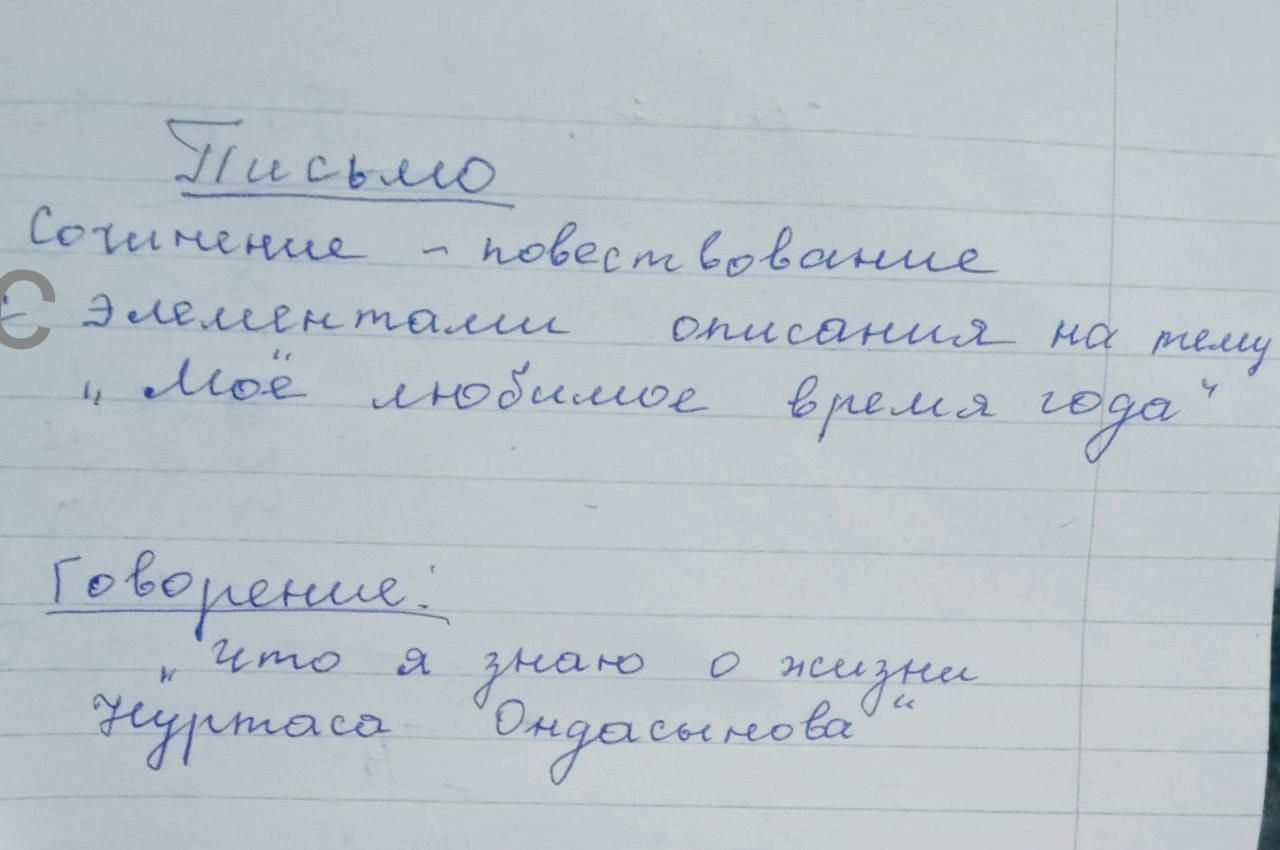 Письмо
Сочинение - повествование
с элементами описания на тему
„Моё любимое время года“
Говорение:
„Что я знаю о жизни
Нуртаса Ондасынова“